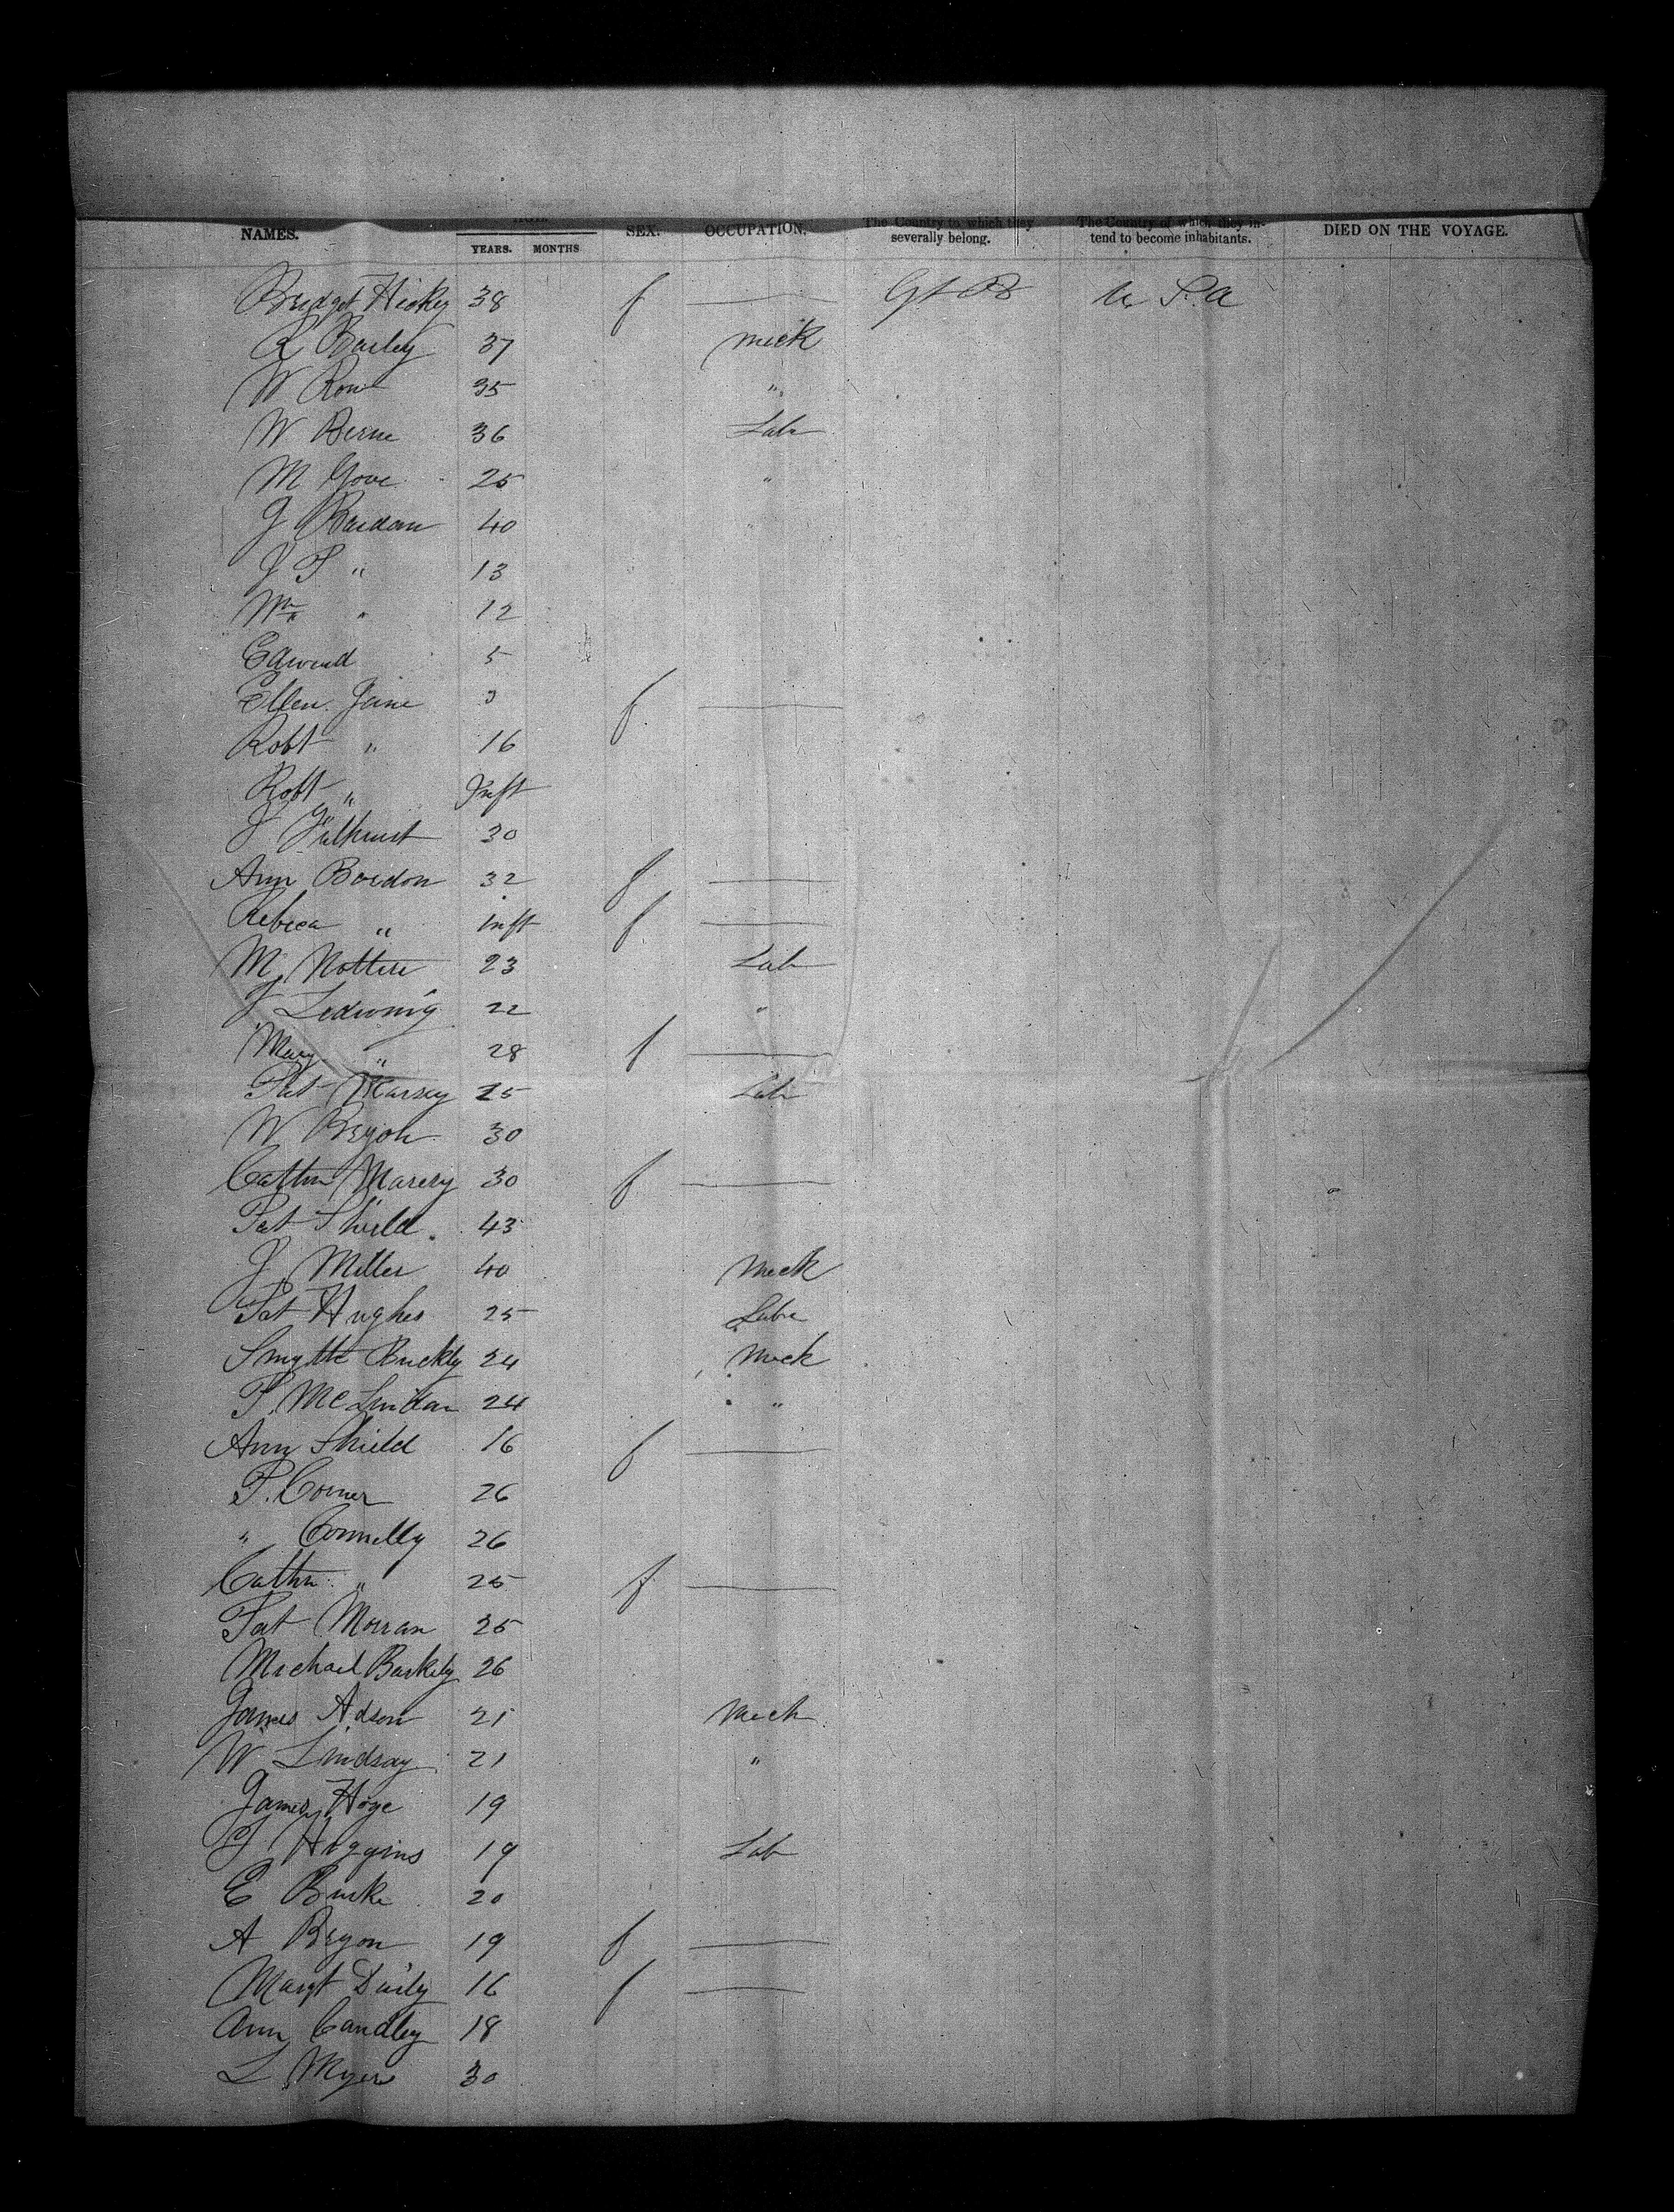 NAMES. YEARS. MONTHS SEX. OCCUPATION. The Country to which they severally belong. The Country of which they intend to become inhabitants. DIED ON THE VOYAGE.
Bridget Hickey 38 f Gt B U S. A
R Bailey 37 Mech
W Row 35 "
W Berne 36 Lab
M Gove 25 "
J 40
J S " 13
Wm " 12
Edward 5
Ellen Jane f
Robt " 16
Robt " Inft
J 30
Ann Bordon 32 f
Rebeca " Inft f
M 23 Lab
J Ledwinig 22 "
Mary " 28 f
Pat Marsey 25 Lab
W Bryon 30
Cathn Marery 30 f
Pat Shield 43
J Miller 40 Mech
Pat Hughes 25 Labr
Smythe Buckly 24 Mech
P. McLindan 24 "
Ann Shield 16 f
P. Corner 26
" Connelly 26
Cathn " 25 f
Pat Morran 25
Michael Barkely 26
James Adson 21 Mech
W Lindsay 21 "
James Hoge 19
T Higgins 19 Lab
E Burke 20
A Bryon 19 f
Margt Daily 16 f
Ann Candley 18
L Myers 30